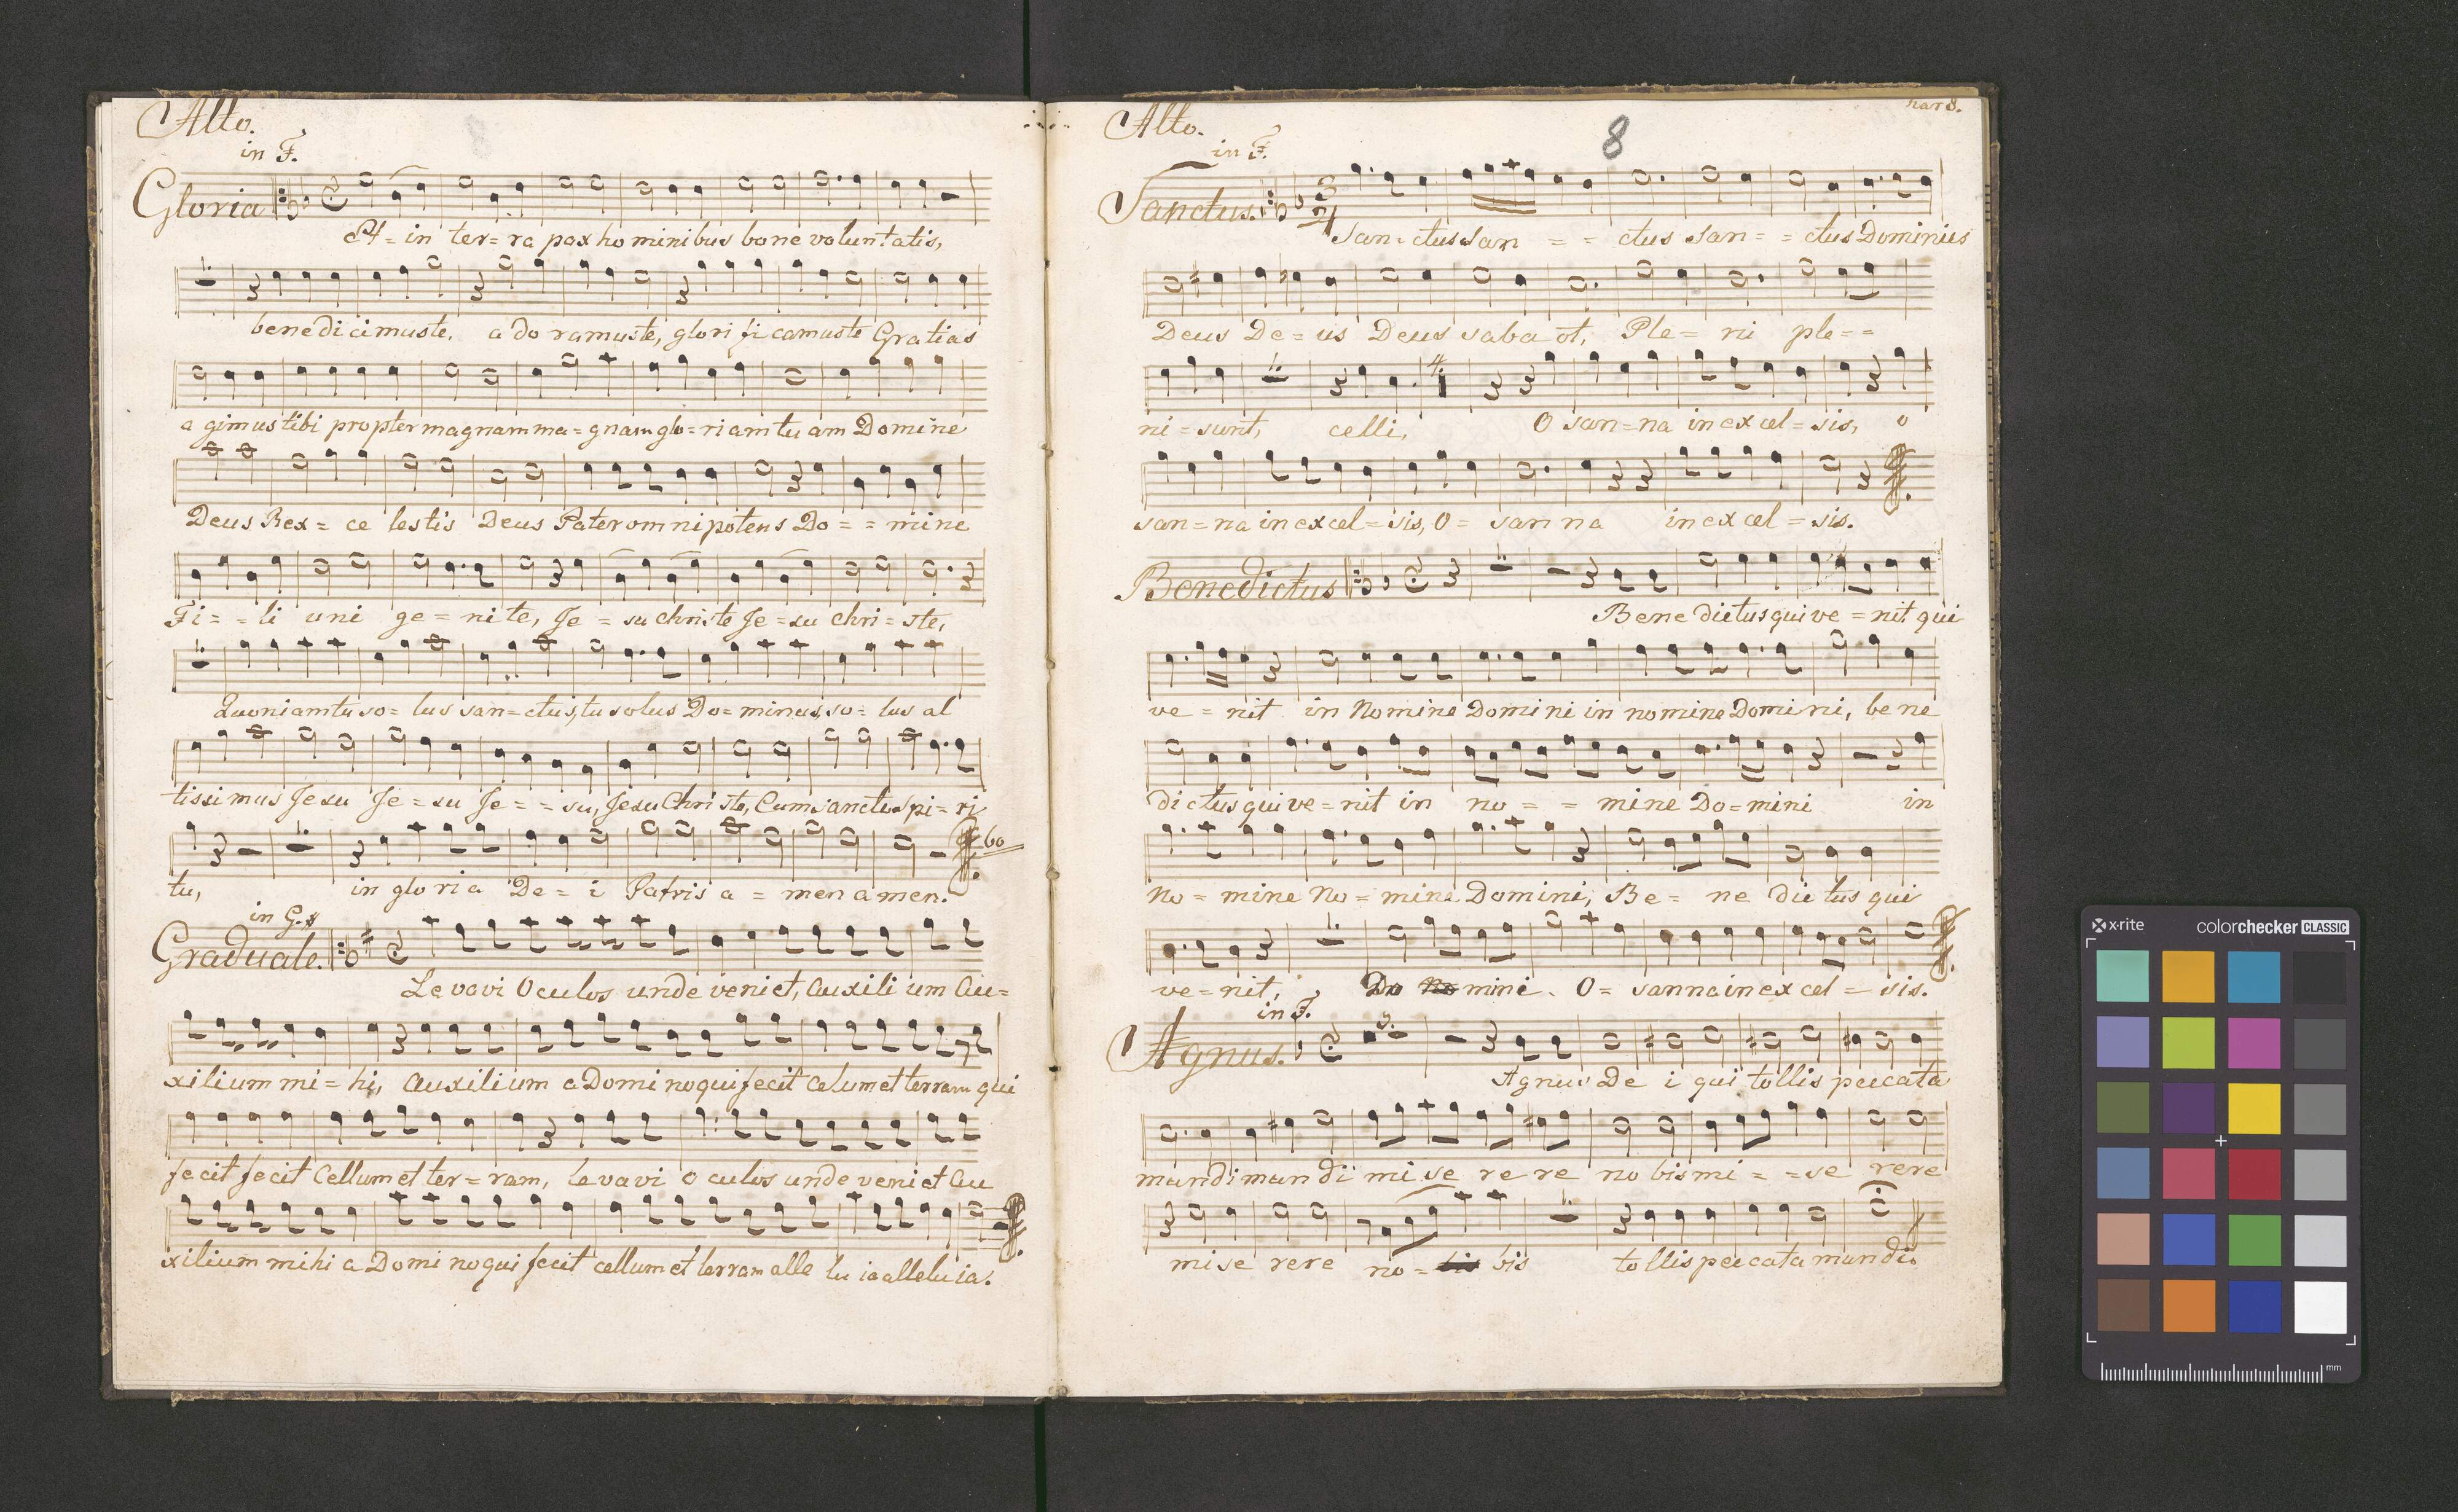 Alto.
in F.
Gloria
Et = in ter = ra pax ho minibus bone voluntatis,
benedicimuste, a do ramuste, glori fi camuste Gratias
a gimus tibi propter magnam ma = gnam glo = riam tu am Domine
Deus Rex = ce lestis Deus Pater omnipotens Do = = mine
Fi = = li uni ge = nite, Je = su Christe Je = su Chri = ste,
Quoniam tu so = lus san = ctus, tu solus Do = minus, so = lus al
tissimus Jesu Je = su Je = = su, Jesu Chri ste, Cum sancto spi = ri
60
tu, in gloria De = i Patris a = men amen.
in G.
Graduale.
Levavi Oculos unde veniet, auxili um au =
xilium mi = hi, auxilium a Domino qui fecit celum et terram qui
fecit fecit Cellum et ter = ram, levavi o culos unde veniet au
xilium mihi a Domi no qui fecit cellum et terram alle lu ia alleluia.
Alto.
8
in F.
Sanctus.
3
4
San = ctus san = = ctus San = = ctus Dominus
Deus De = us Deus saba ot, Ple = ni ple = =
4
ni = sunt, celli, O san = na in ex cel = sis, o
san = na in ex cel = sis, O = san na in ex cel = sis.
Benedictus
Bene dictus qui ve = nit qui
ve = nit in Nomine Domini in nomine Domini, be ne
dictus qui ve = nit in no = = mine Do = mini in
No = mine No = mine Domini, Be = ne dictus qui
ve = nit, Do mini. O = sanna in ex cel = sis.
in F.
Agnus.
Agnus De i qui tollis peccata
mundi mun di mi se re re no bis mi = = se rere
mise rere no = bis tollis peccata mundi.
x·rite
colorchecker CLASSIC
mm